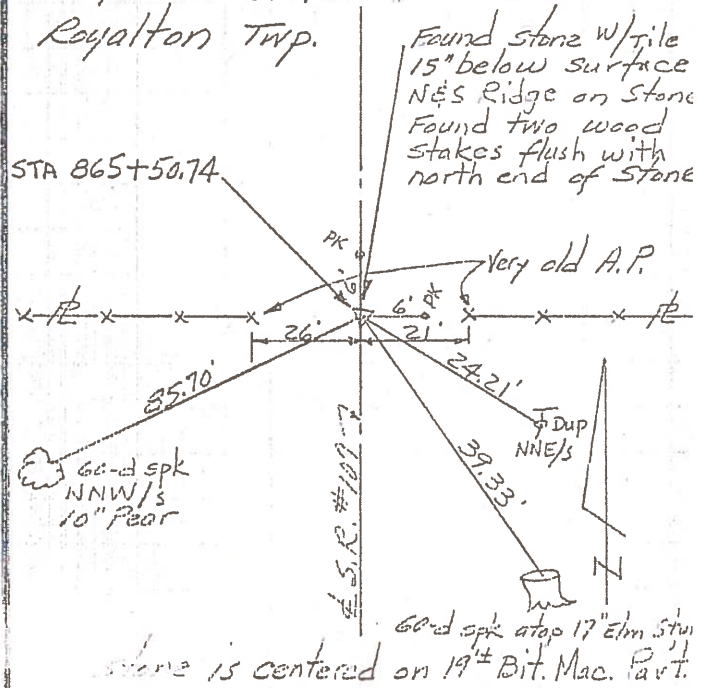 Royalton Twp.
Found stone W/Tile
15" below surface
N&S Ridge on Stone
Found two wood
stakes flush with
north end of Stone
STA 865+50.74
PK
6'
Very old A.P.
6'
PK
26'
21'
85.70'
24.21'
39.33'
Dup
NNE/s
60-d spk
NNW/s
10" Pear
S.R. #109
N
60-d spk atop 17" Elm
stone is centered on 19'± Bit. Mac. Pav't.